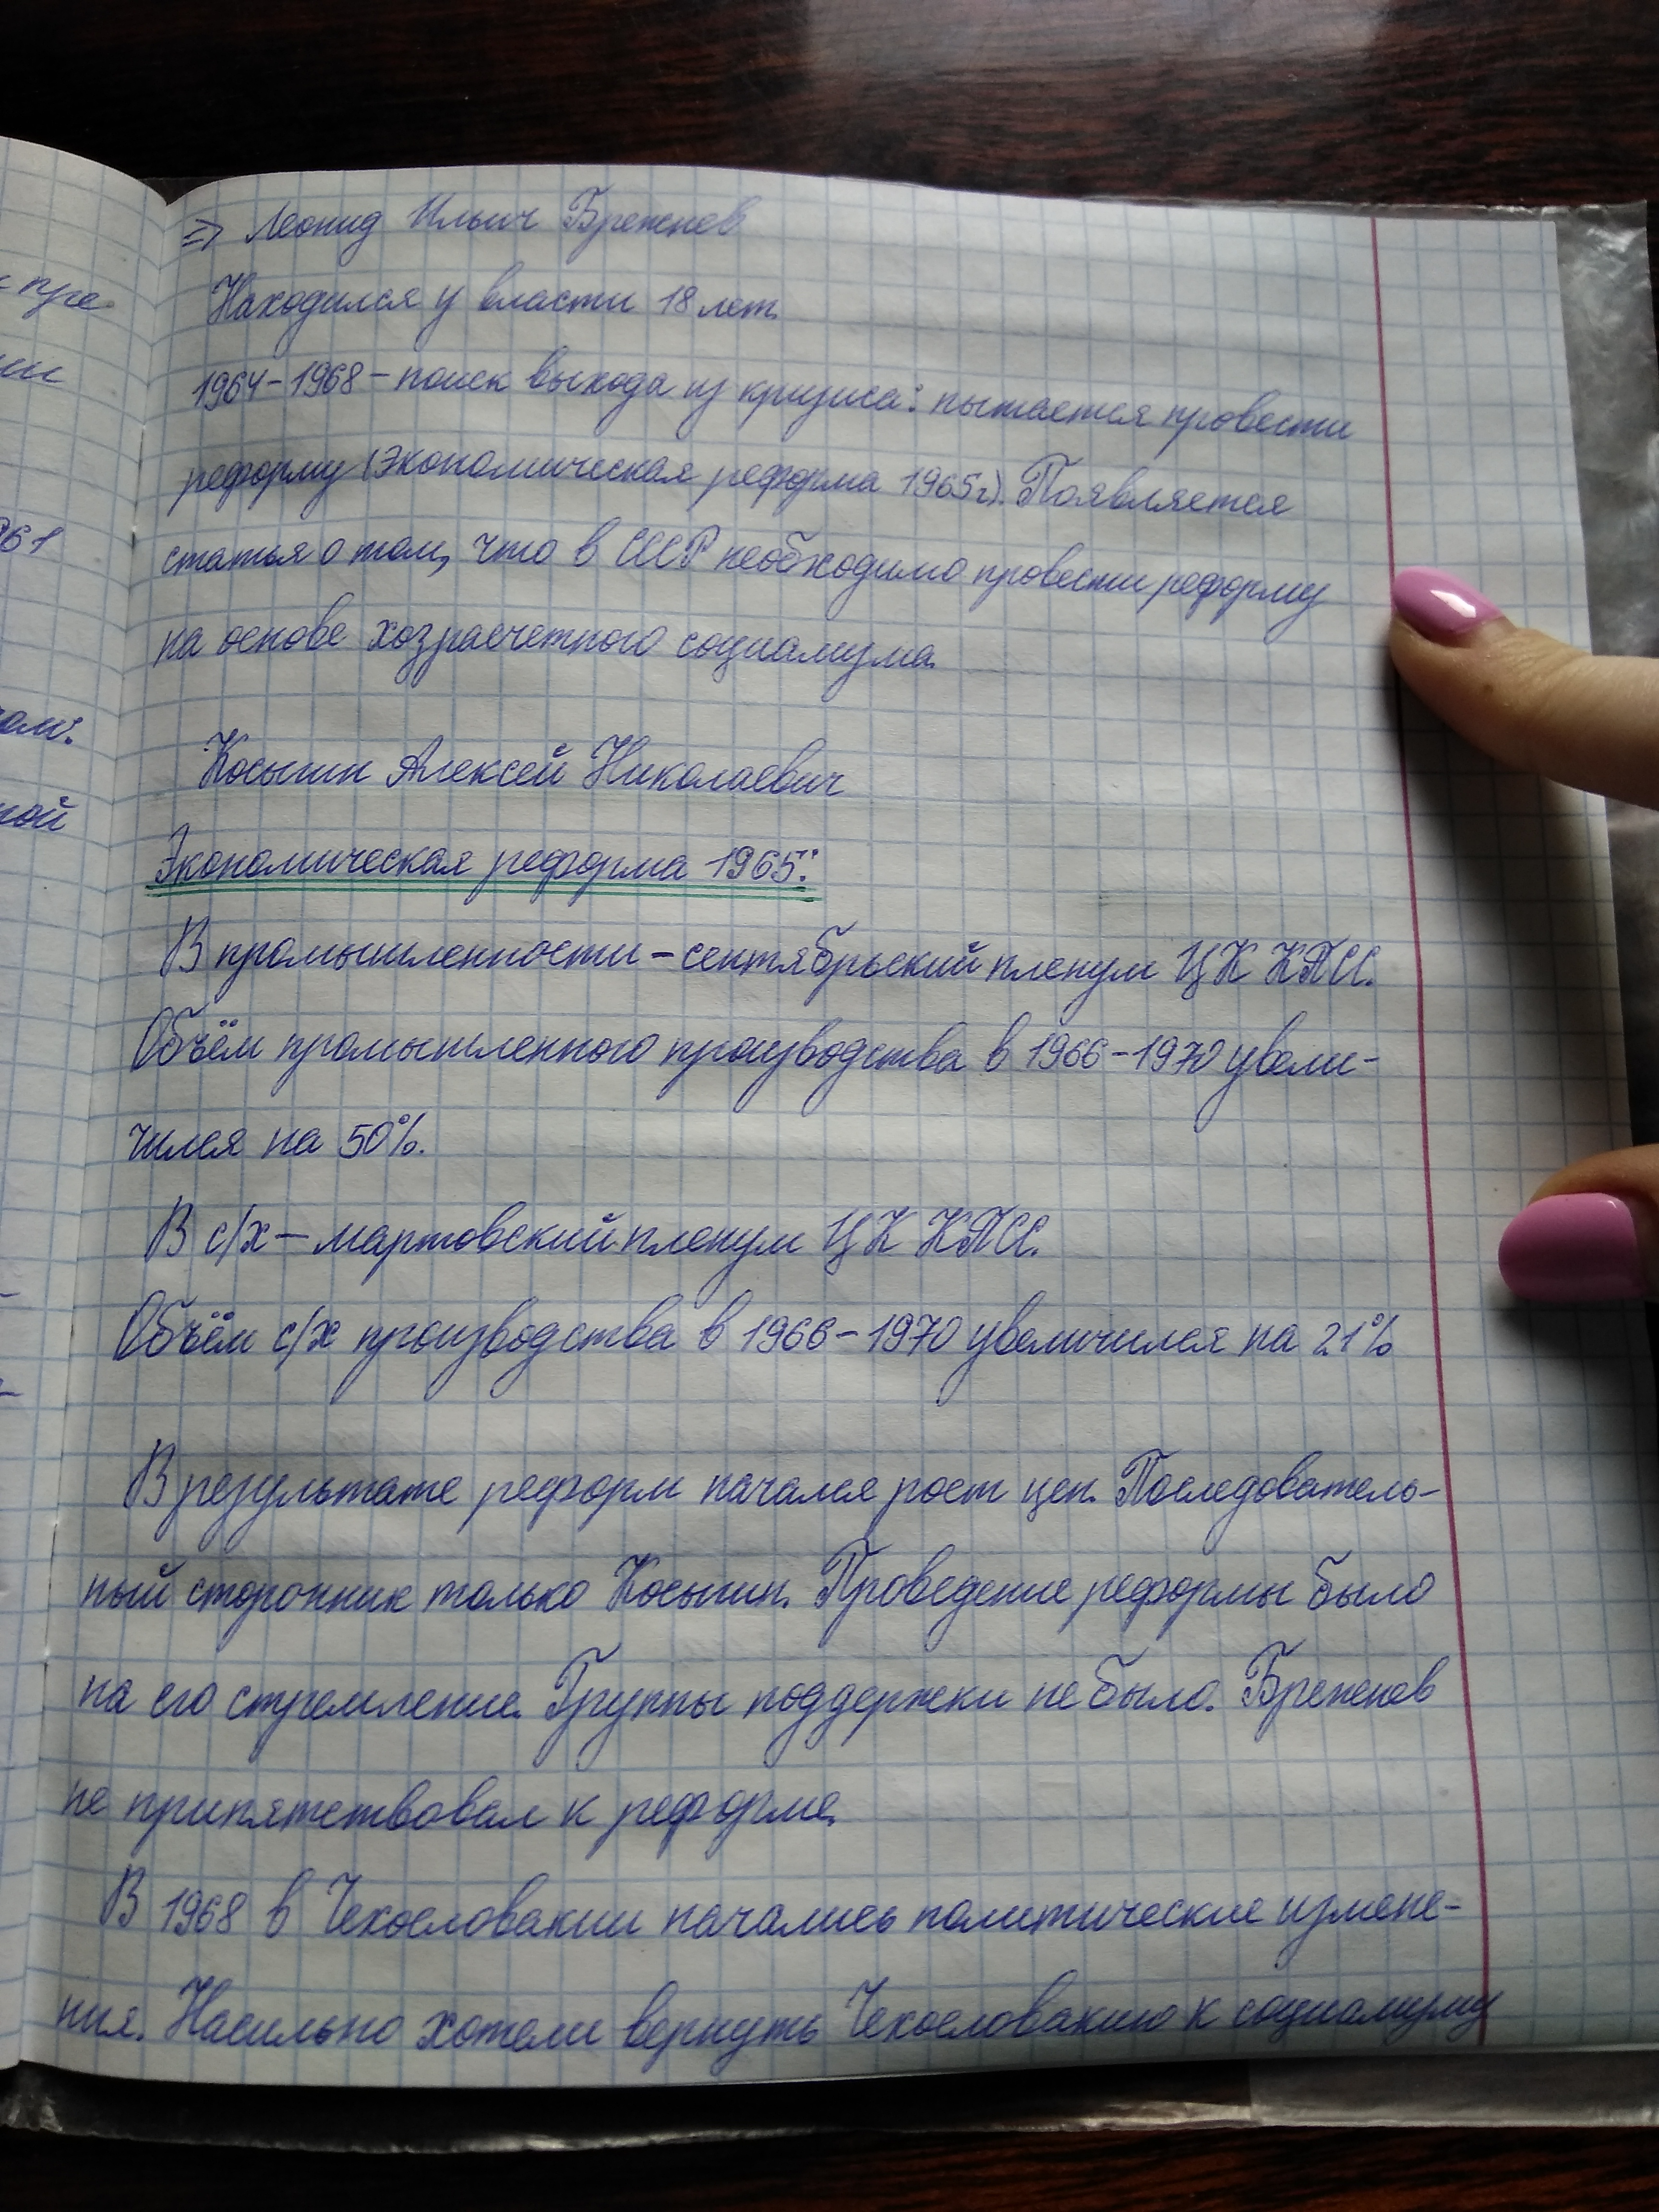 ⇒ Леонид Ильич Брежнев
Находился у власти 18 лет.
1964-1968 - поиск выхода из кризиса: пытается провести
реформу (экономическая реформа 1965г). Появляется
статья о том, что в СССР необходимо провести реформу
на основе хозрасчетного социализма.
Косыгин Алексей Николаевич
Экономическая реформа 1965:
В промышленности - сентябрьский пленум ЦК КПСС.
Объём промышленного производства в 1966-1970 увели-
чился на 50%.
В с/х - мартовский пленум ЦК КПСС.
Объём с/х производства в 1966-1970 увеличился на 21%
В результате реформ начался рост цен. Последователь-
ный сторонник только Косыгин. Проведение реформы было
на его стремление. Группы поддержки не было. Брежнев
не припятствовал к реформе.
В 1968 в Чехословакии начались политические измене-
ния. Насильно хотели вернуть Чехословакию к социализму
пре
ии
961
ам:
ной